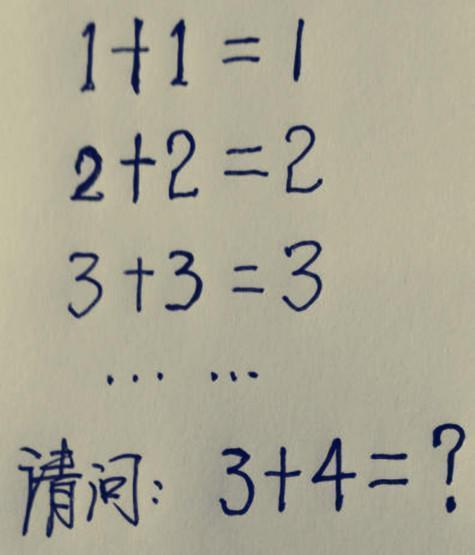 1+1=1
2+2=2
3+3=3
... ...
请问: 3+4=?